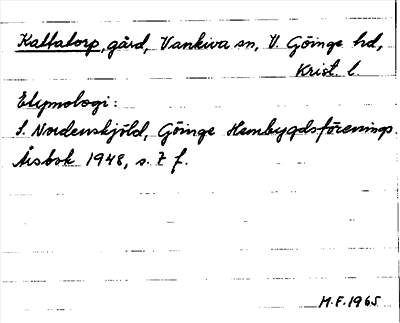 Kattatorp, gård, Vankiva sn, V. Göinge hd,
Krist. l.
Etymologi:
S. Nordenskjöld, Göinge Hembygdsförenings
Årsbok 1948, s. 7 f.
M.F. 1965